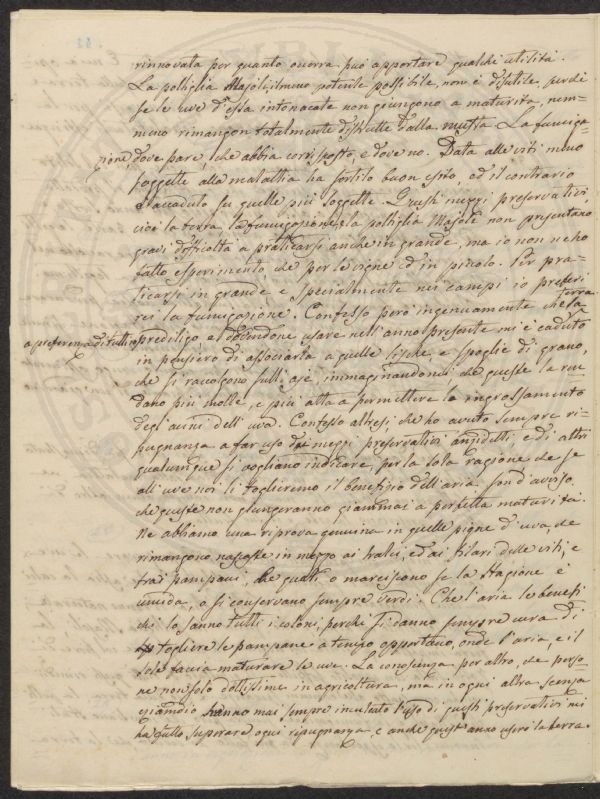 rinnovata per quanto occorra può apportare qualche utilità.
La poltiglia Majoli, almeno potente possibile, non è disutile, perché
se le uve d'essa intonacate non giungono a maturità, nem-
meno rimangon totalmente distrutte dalla muffa. La fumiga-
zione, dove pare, che abbia corrisposto, e dove no. Data alle viti meno
soggette alla malattia ha sortito buon esito, ed il contrario
è accaduto su quelle più soggette. Questi mezzi preservativi
cioè la terra, la fumigazione, e la poltiglia Majoli non presentano
gravi difficoltà a praticarsi anche in grande, ma io non ne ho
fatto esperimento che per le vigne ed in piccolo. Per pra-
ticarsi in grande e specialmente nei campi io preferi
rei la fumigazione. Confesso però ingenuamente che la terra
a preferenza di tutti io prediligo e dovendone usare nell'anno presente mi è caduto
in pensiero di associarla a quelle lische, e spoglie di grano,
che si raccolgono sull'aje, immaginandomi che queste la ren
dano più molle, e più atta a permettere la ingrossamento
degli acini dell'uva. Confesso altresì che ho avuto sempre ri-
pugnanza a far uso dei mezzi preservativi anzidetti, e di altri
qualunque si vogliano indicare, per la sola ragione che se
all'uve noi li toglieremo il benefizio dell'aria son d'avviso
che queste non giungeranno giammai a perfetta maturità.
Ne abbiamo una riprova genuina in quelle pigne d'uva che
rimangono nascoste in mezzo ai tralci, ed ai filari delle viti, e
tra i pampani, le quali o marciscono se la stagione è
umida, o si conservano sempre verdi. Che l'aria le benefi
chi lo sanno tutti i coloni, perché si danno sempre cura di
togliere le pampane a tempo opportuno, onde l'aria, e il
sole faccia maturare le uve. La conoscenza per altro, che perso
ne non solo dottissime in agricoltura, ma in ogni altra scienza
eziamdio hanno mai sempre inculcato l'uso di questi preservativi mi
ha fatto superare ogni ripugnanza e anche quest'anno userò la terra.